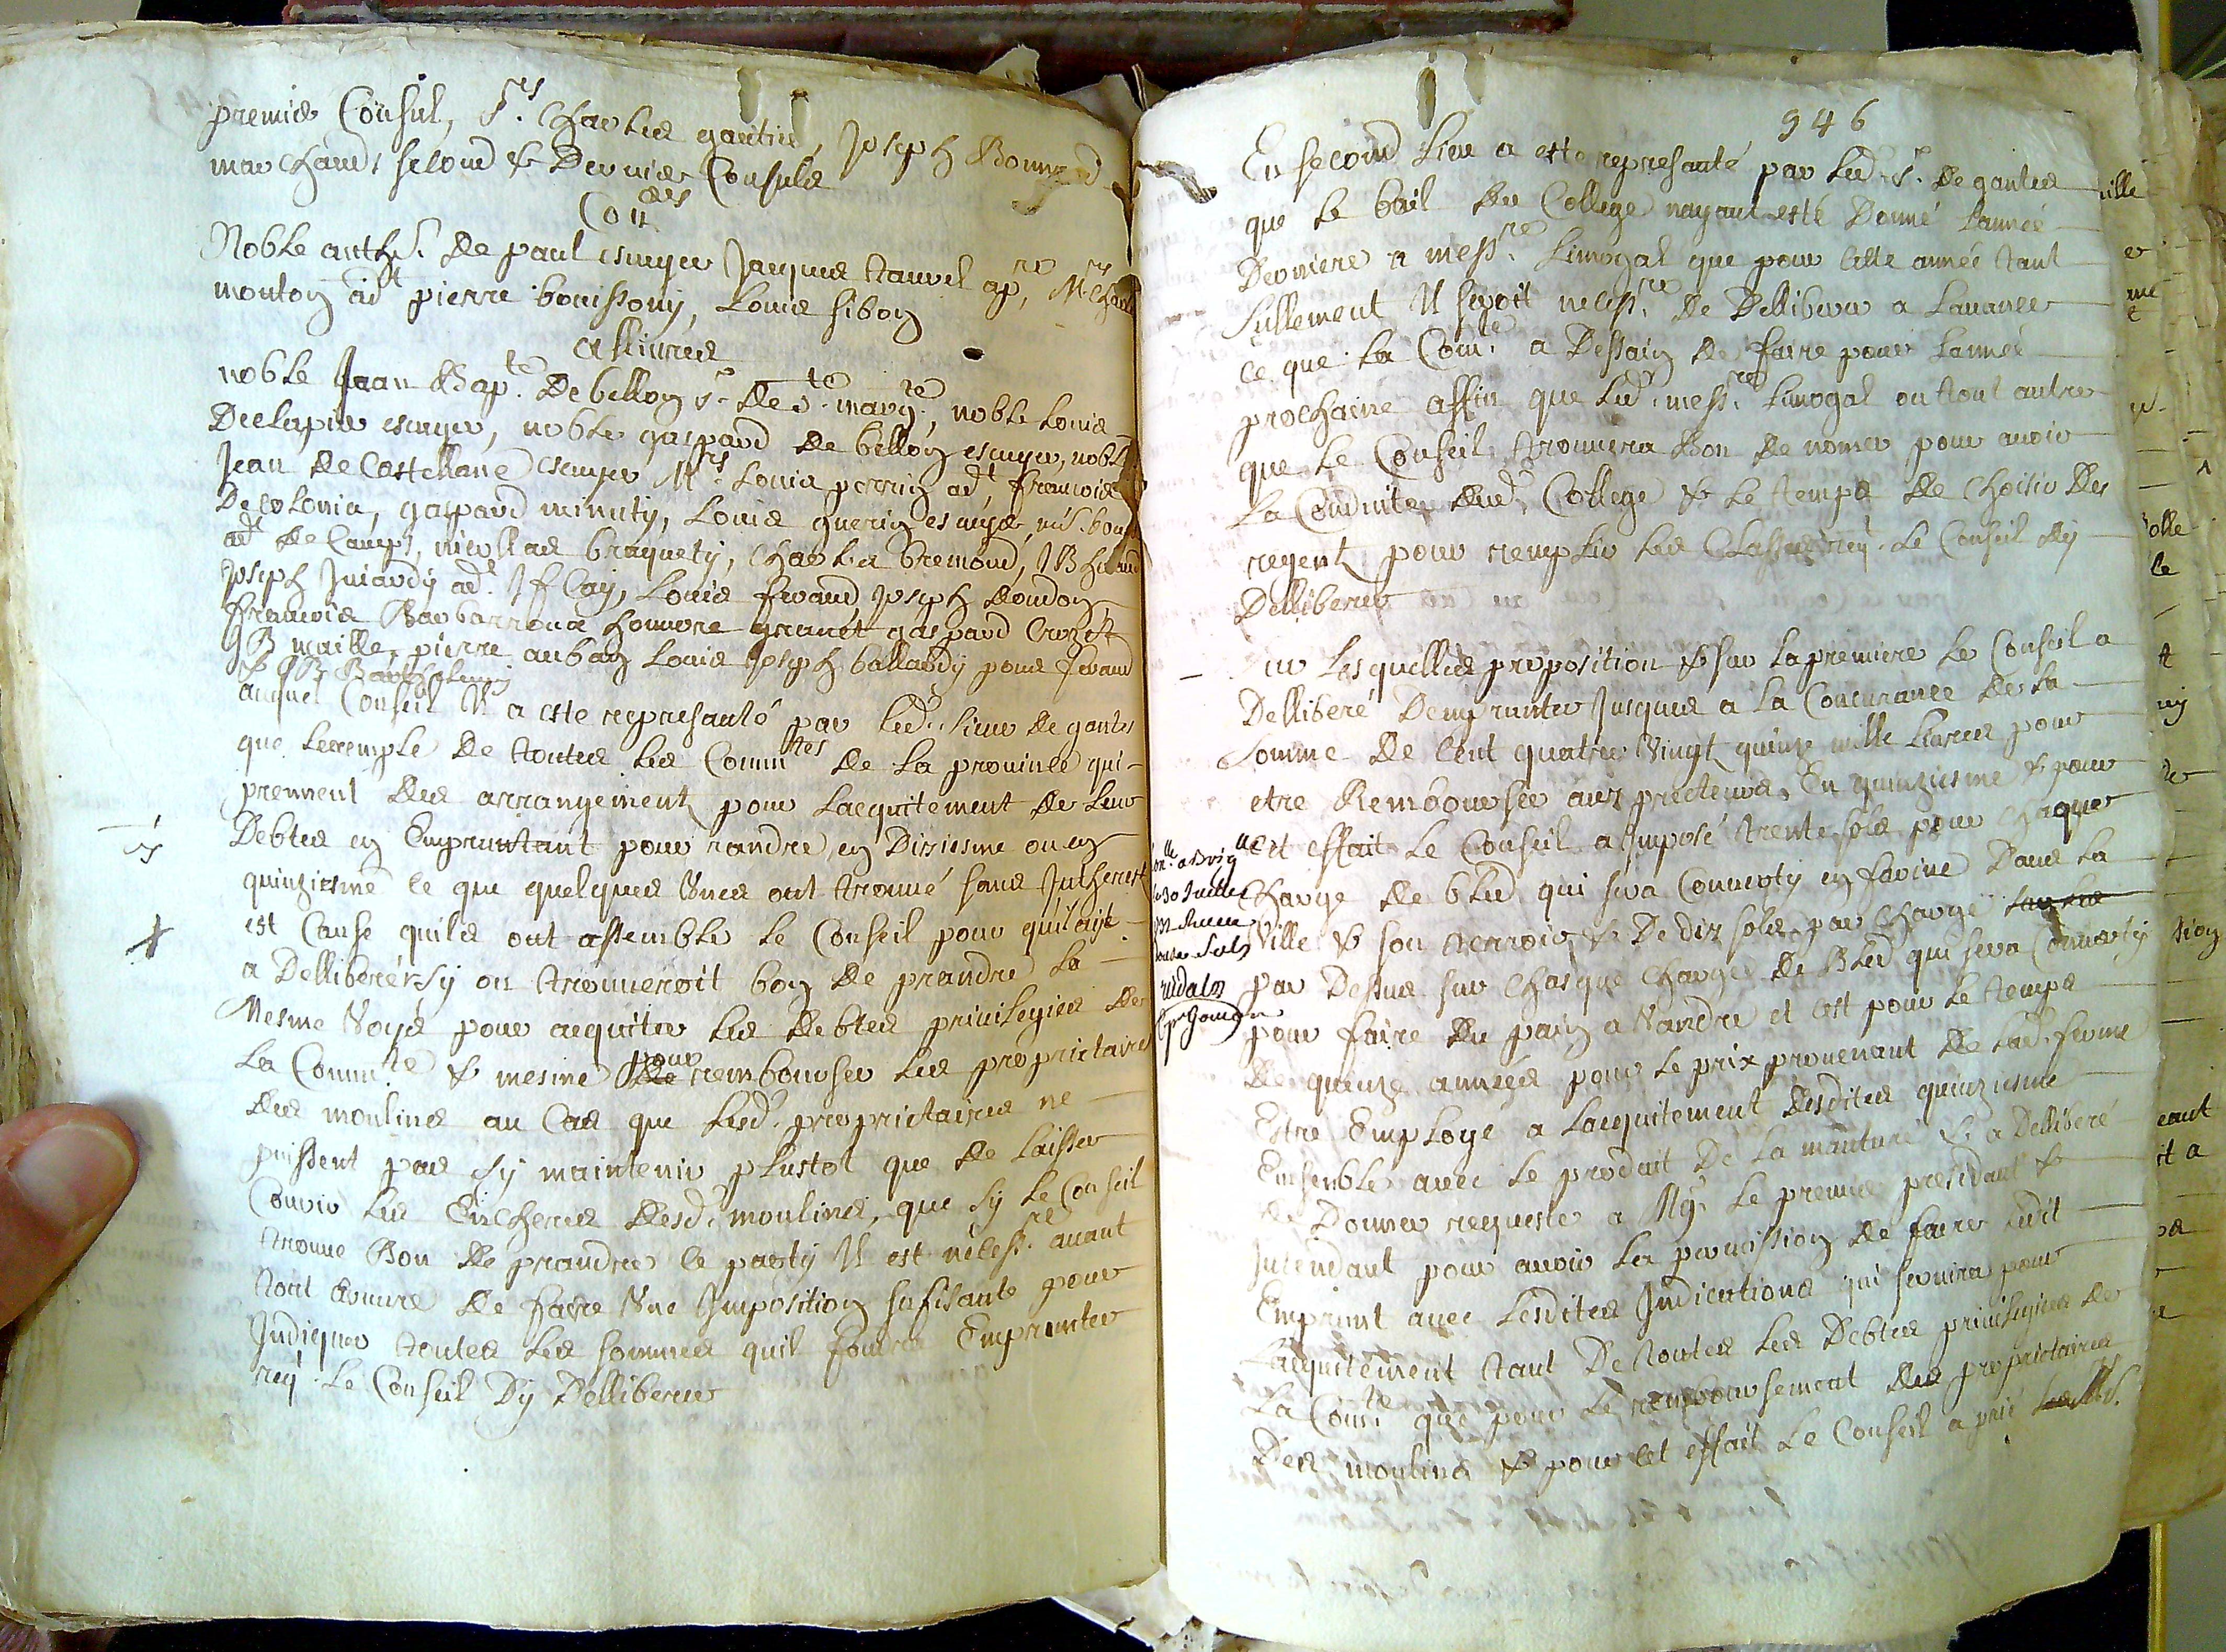 premier Consul, Srs. Charles gautier, Joseph Bonnard
marchands second & Dernier Consuls
Coners
Noble anth. S. De paul escuyer Jacques tauvel apre, Mrs Charles
monton adt pierre bouissony, Louis sibon
assimés
noble Jean Bapte. De bellon sr. de ste. margte, noble Louis
Deelapie escuyer, noble gaspard de bellon escuyer, noble
Jean de Castellane escuyer Mrs. Louis perrin adt, francois
De colonia, gaspard minuty, Louis guerin escuyer,
adt de Camps, nicollas braquety, Charles bremond, JB
Joseph Juiardy adt. J f Cay, Louis feraud Joseph doudon
francois Barbarroux honnore granet gaspard Crozet
JB maille, pierre auban Louis Joseph ballardy pons feraud
& JB Barthelemy
auquel Conseil Il a este represanté par led. sieur de gautier
que lexemple de toutes les Commtes de la province qui
prennent des arrangement pour lacquitement de leur
Debtes en Empruntant pour randre en Dixiesme ou en
quinziesme ce que quelques Unes ont trouvé sans Intherest
est Cause quils ont assemble le Conseil pour quil aye
a Delliberér sy on trouveroit bon de prandre la
Mesme Voye pour acquiter les debtes privilegies de
la Commte & mesme de pour rembourser les proprietaires
des moulins au Cas que lesd. proprietaires ne
puissent pas sy maintenir plustot que de laisser
Courir les Encheres desd. moulins, que sy le Conseil
trouve Bon de prandre ce party Il est necessre. avant
tout œuvre de faire Une Imposition sufisante pour
Indiquer toutes les sommes quil foudra Emprunter
req. le Conseil Dy Delliberer
946
En second lieu a este represanté par led. sr. de gautier
que le bail du College nayant esté Donné lannée
Derniere a messre. Limogal que pour cette année tant
sullement Il seroit necessre. de Delliberer a Lavance
ce que la Comte. a Dessain de faire pour lannée
prochaine affin que led. messre. Limogal ou tout autre
que le Conseil trouvera Bon de nomer pour avoir
la Conduite dud. College & le temps de choisir des
regent pour remplir les Classes req. le Conseil dy
Delliberer
Sur lesquelles proposition & sur la premiere le Conseil a
Delliberé Demprunter Jusques a la Concurance de la
somme de Cent quatre Vingt quinze mille livres pour
etre Remboursée aux preteurs En quinziesme & pour
cet effait le Conseil a Imposé trente sols pour chaque
Charge de bled qui sera Converty en farine Dans la
Ville & son terroir, & De dix sols par charge sur les
par Dessus sur chasque charge de Bled qui sera Converty
pour faire du pain a Vandre et cest pour le temps
de quinze années pour le prix provenant de lad. ferme
Estre Employé a lacquitement desdites quinziesme
Ensemble avec le produit De la mouture & a Delliberé
de Donner requeste a Mgr. le premier presidant &
Intendant pour avoir la permission de faire ledit
Emprunt avec lesdites Indications qui servira pour
lacquitement tant De toutes les Debtes privilegies de
la Comte. que pour le remboursement des proprietaires
Des moulins & pour cet effait le Conseil a prié